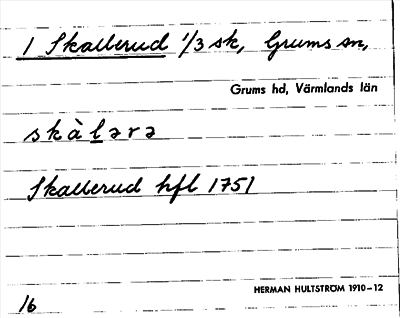 1 Skallerud 1/3 sk, Grums sn,
Grums hd, Värmlands län
skàlərə
Skallerud hfl 1751
HERMAN HULTSTRÖM 1910–12
16